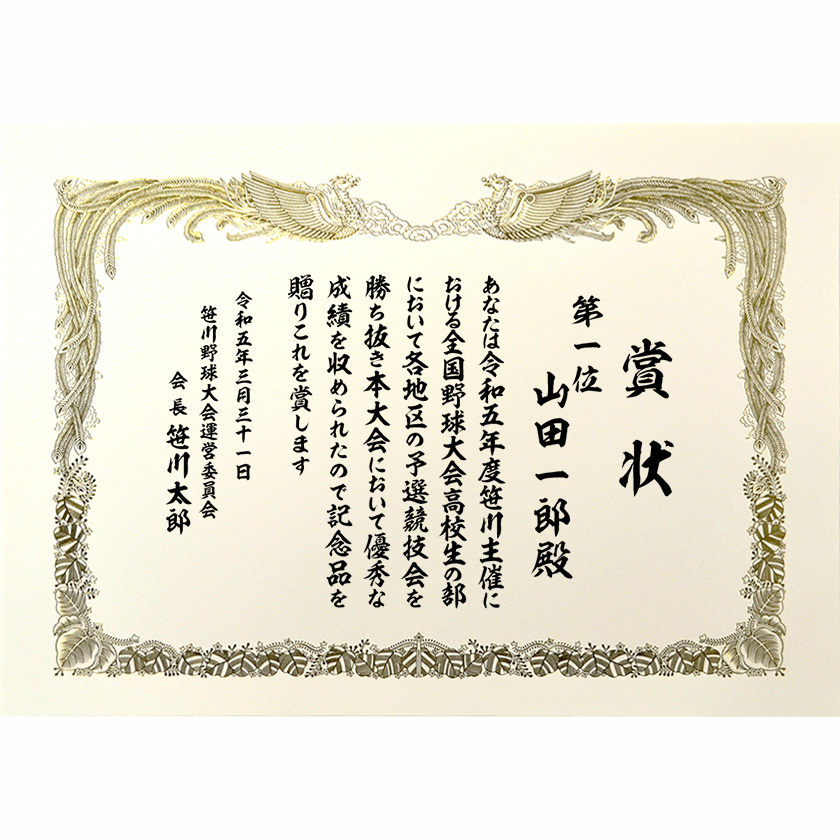 賞状
第一位
山田一郎殿
あなたは令和五年度笹川主催に
おける全国野球大会高校生の部
において各地区の予選競技会を
勝ち抜き本大会において優秀な
成績を収められたので記念品を
贈りこれを賞します
令和五年三月三十一日
笹川野球大会運営委員会
会長 笹川太郎